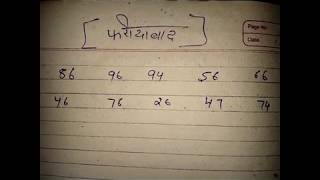 Page No.
Date
[फरीदाबाद]
86 96 94 56 66
46 76 26 47 74